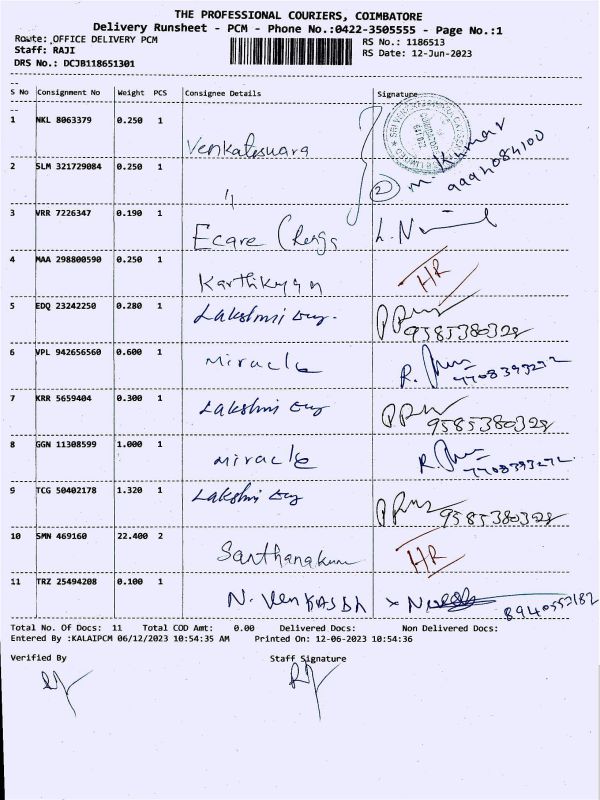 THE PROFESSIONAL COURIERS, COIMBATORE
Delivery Runsheet - PCM - Phone No.:0422-3505555 - Page No.:1
Route: OFFICE DELIVERY PCM
Staff: RAJI
DRS No.: DCJB118651301
RS No.: 1186513
RS Date: 12-Jun-2023
S No Consignment No Weight PCS Consignee Details Signature
1 NKL 8063379 0.250 1 Venkateswara
2 SLM 321729084 0.250 1 " 2 M. Kumar
3 VRR 7226347 0.190 1 Ecare
4 MAA 298800590 0.250 1 Karthikyan HR
5 EDQ 23242250 0.280 1 Lakshmi 9585380328
6 VPL 942656560 0.600 1 Miracle 7708393272
7 KRR 5659404 0.300 1 Lakshmi 9585380328
8 GGN 11308599 1.000 1 miracle 7708393272
9 TCG 50402178 1.320 1 Lakshmi 9585380328
10 SMN 469160 22.400 2 Santhanakum HR
11 TRZ 25494208 0.100 1 N. Venkatesh 8940552182
Total No. Of Docs: 11 Total COD Amt: 0.00 Delivered Docs: Non Delivered Docs:
Entered By :KALAIPCM 06/12/2023 10:54:35 AM Printed On: 12-06-2023 10:54:36
Verified By Staff Signature